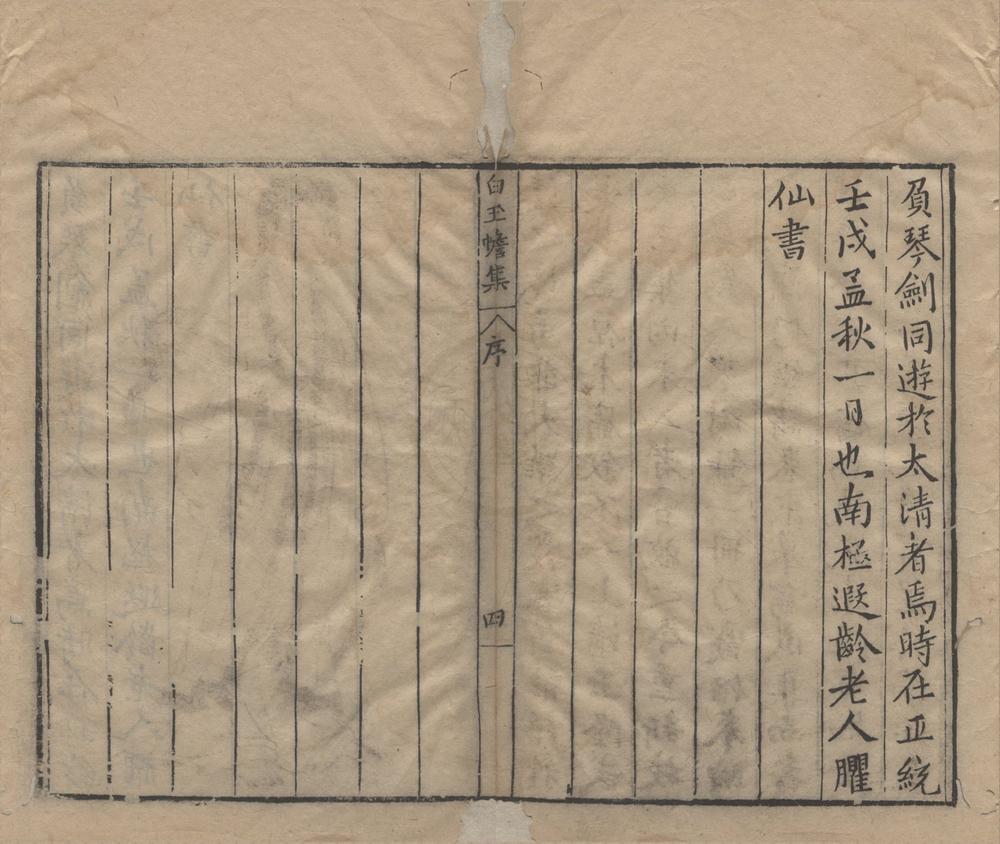 負琴劍同遊於太清者焉時在正統
壬戌孟秋一日也南極遐齡老人臞
仙書
白玉蟾集
序
四